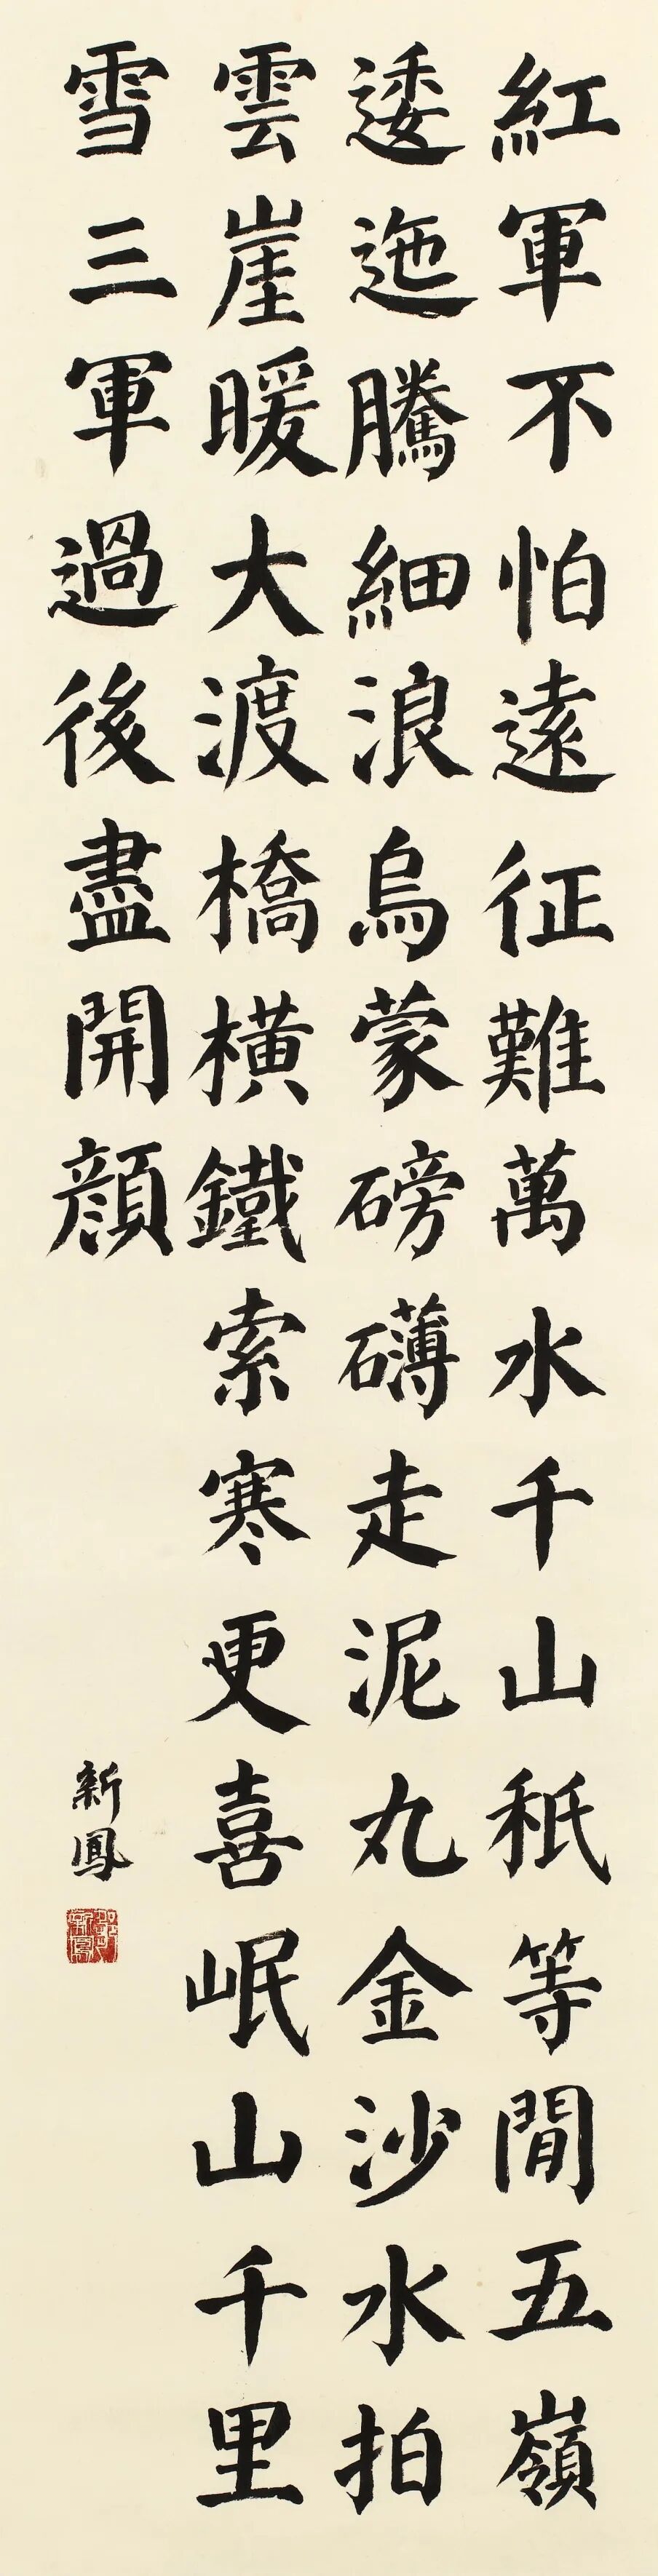 紅軍不怕遠征難萬水千山秖等閒五嶺
逶迤騰細浪烏蒙磅礴走泥丸金沙水拍
雲崖暖大渡橋橫鐵索寒更喜岷山千里
雪三軍過後盡開顏
新鳳